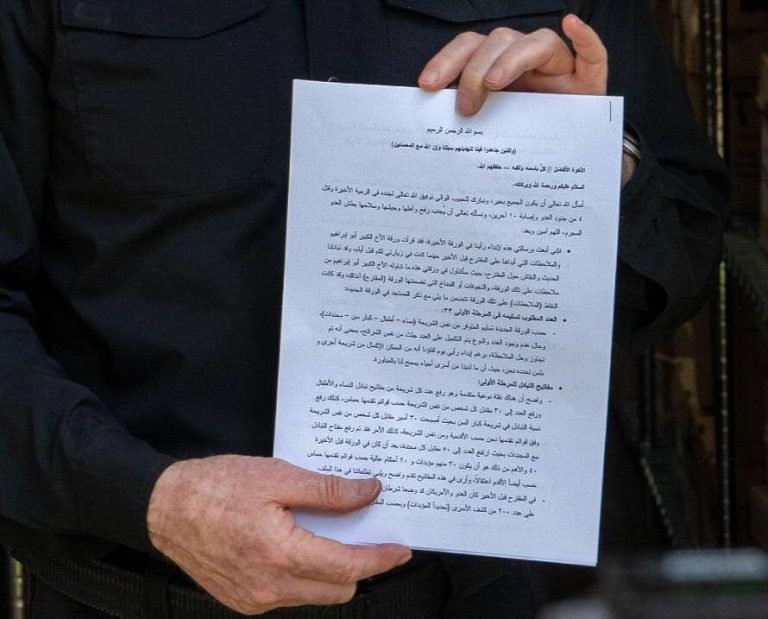 بسم الله الرحمن الرحيم
(والذين جاهدوا فينا لنهدينهم سبلنا وإن الله مع المحسنين)
الأخوة الأفاضل // كلٌ باسمه ولقبه ... حفظهم الله.
السلام عليكم ورحمة الله وبركاته.
أسأل الله تعالى أن يكون الجميع بخير، ونبارك للحبيب الوالي توفيق الله تعالى لجنده في الرمية الأخيرة وقتل
٤ من جنود العدو وإصابة ١٠ آخرين، ونسأله تعالى أن يُجنب رفح وأهلها وجيشها وسلاحها بطش العدو
المجرم، اللهم آمين وبعد:
• فإني أبعث برسالتي هذه لإبداء رأينا في الورقة الأخيرة، فقد قرأت ورقة الأخ الكبير أبو إبراهيم
والملاحظات التي أبداها على المقترح قبل الأخير حينما كنت في زيارتي لكم قبل أيام، وقد تبادلنا
الحديث والنقاش حول المقترح، حيث سأتناول في ورقتي هذه ما تداوله الأخ الكبير أبو إبراهيم من
ملاحظات على تلك الورقة، والتخوفات أو الفخاخ التي تضمنتها الورقة (المقترح) آنذاك، وقد كانت
النقاط (الملاحظات) على تلك الورقة تتضمن ما يلي مع ذكر المستجد في الورقة الجديدة:
• العدد المطلوب تسليمه في المرحلة الأولى ٣٣:
- حسب الورقة الجديدة تسليم المتوفر من نفس الشريحة (نساء – أطفال – كبار سن – مجندات)،
وحال عدم وجود العدد والنوع يتم التكميل على العدد جثث من نفس الشرائح، بمعنى أنه تم
تجاوز وحل الملاحظة، برغم إبداء رأيي يوم لقاؤنا أنه من الممكن الإكمال من شريحة أخرى و
بثمن نحدده نحن، حيث أن ما لدينا من أسرى أحياء يسمح لنا بالمناورة.
• مفاتيح التبادل للمرحلة الأولى:
- واضح أن هناك نقلة نوعية متقدمة وهو رفع عدد كل شريحة من مفاتيح تبادل النساء والأطفال
ورفع العدد إلى ٣٠ مقابل كل شخص من نفس الشريحة حسب قوائم تقدمها حماس، كذلك رفع
نسبة التبادل في شريحة كبار السن بحيث أصبحت ٣٠ أسير مقابل كل شخص من نفس الشريحة
وفق قوائم نقدمها نحن حسب الأقدمية ومن نفس الشريحة، كذلك الأمر فقد تم رفع مفتاح التبادل
مع المجندات بحيث ارتفع العدد إلى ٥٠ مقابل كل مجندة، بعد أن كان في الورقة قبل الأخيرة
٤٠ والأهم من ذلك هو أن يكون ٣٠ منهم مؤبدات و ٢٠ أحكام عالية حسب قوائم تقدمها حماس
حسب أيضاً الأقدم اعتقالاً، وأرى في هذه المفاتيح تقدم واضح ويلبي تطلعاتنا في هذا الملف.
- في المقترح قبل الأخير كان العدو والأمريكان قد وضعا شرطان
على عدد ٢٠٠ من كشف الأسرى (تحديداً المؤبدات) وبحسب